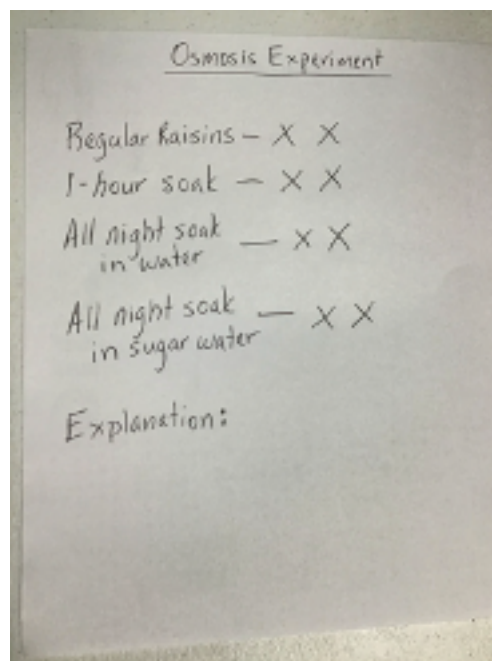 Osmosis Experiment
Regular Raisins – X X
1-hour soak – X X
All night soak
in water — X X
All night soak
in sugar water — X X
Explanation: